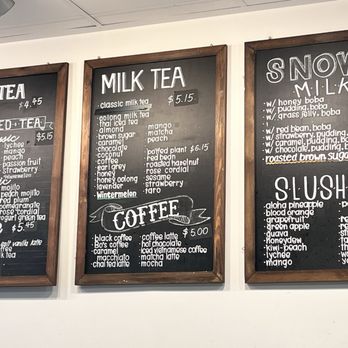 TEA
$4.45
ED TEA
$5.15
lychee
mango
peach
passion fruit
strawberry
pejay mojito
red plum
pomegranate
rose cordial
yogurt green tea
$5.45
MILK TEA
classic milk tea
$5.15
oolong milk tea
thai iced tea
almond
brown sugar
caramel
chocolate
coconut
coffee
earl grey
honey
honey oolong
lavender
Wintermelon
mango
matcha
peach
potted plant $6.15
red bean
roasted hazelnut
rose cordial
sesame
strawberry
taro
COFFEE
$5.00
black coffee
Bo's coffee
caramel
macchiato
chai tea latte
coffee latte
hot chocolate
iced vietnamese coffee
matcha latte
mocha
SNOW
MILK
w/ honey boba
w/ pudding, boba
w/ grass jelly, boba
w/ red bean, boba
w/ strawberry, boba
w/ caramel, pudding, b
w/ chocolate, pudding, b
roasted brown sugar
SLUSH
aloha pineapple
blood orange
grapefruit
green apple
guava
honeydew
kiwi-beach
lychee
mango